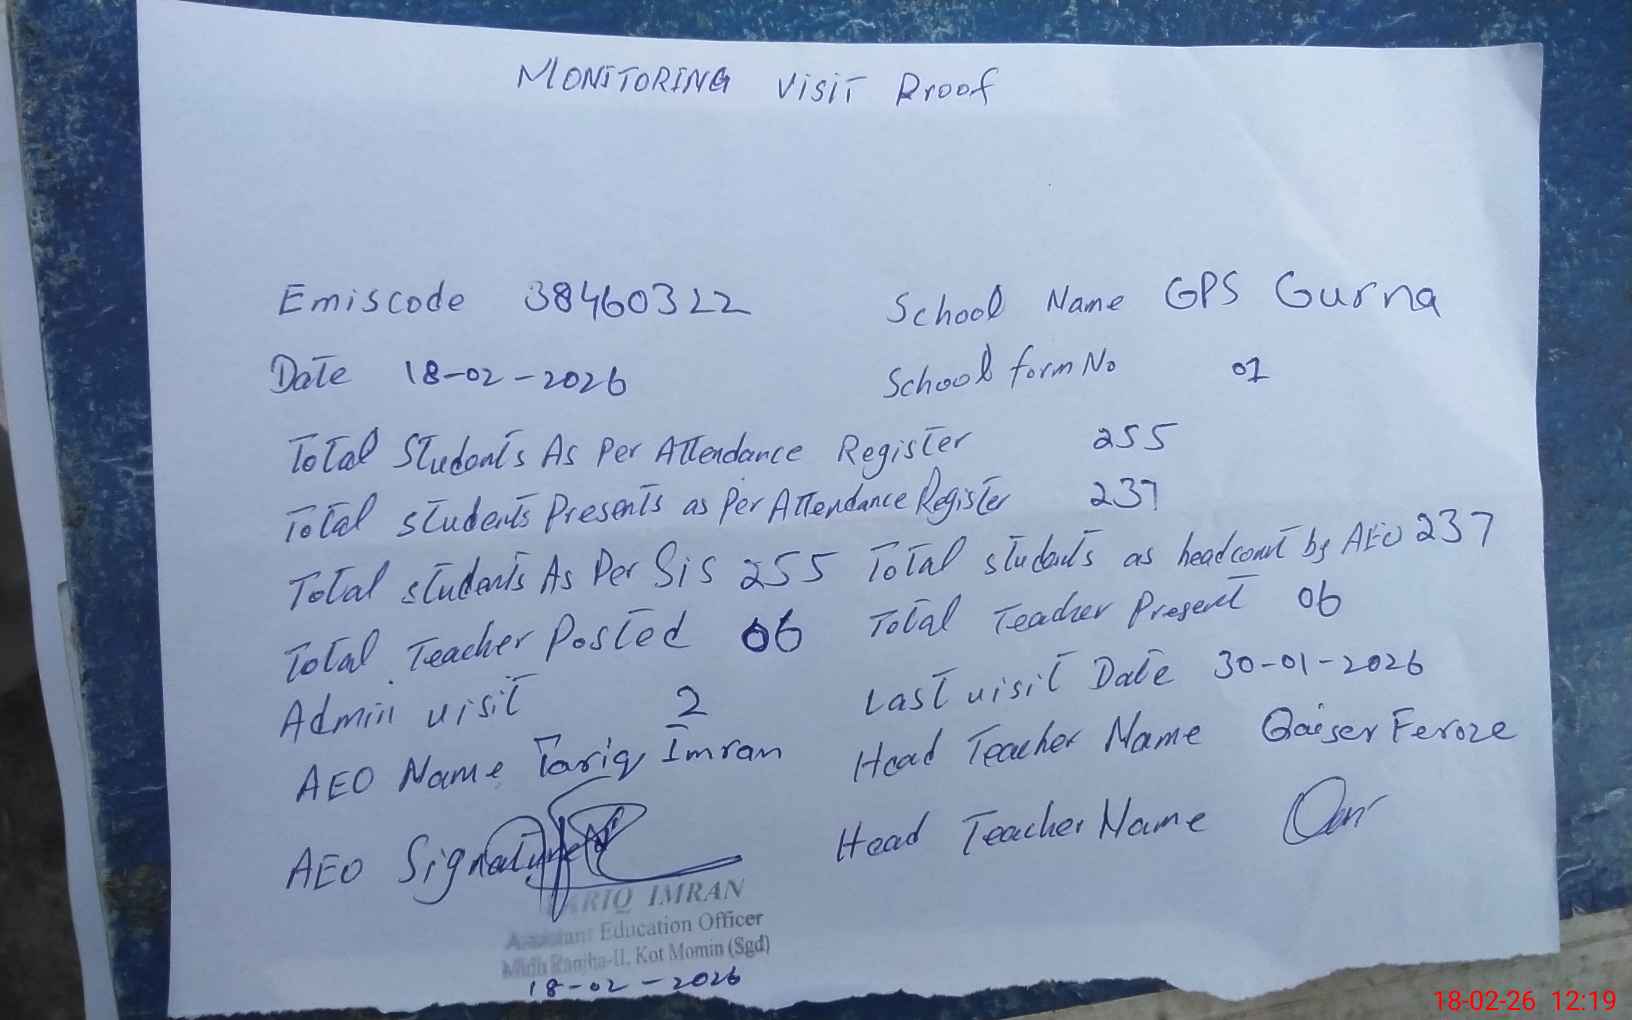 MONITORING Visit Proof
Emiscode 38460322 School Name GPS Gurna
Date 18-02-2026 School form No 01
Total Students As Per Attendance Register 255
Total students Presents as Per Attendance Register 237
Total students As Per Sis 255 Total students as headcount by AEO 237
Total Teacher Posted 06 Total Teacher Present 06
Admin visit 2 Last visit Date 30-01-2026
AEO Name Tariq Imran Head Teacher Name Qaiser Feroze
AEO Signature Head Teacher Name
TARIQ IMRAN
Assistant Education Officer
Midh Ranjha-II, Kot Momin (Sgd)
18-02-2026
18-02-26 12:19